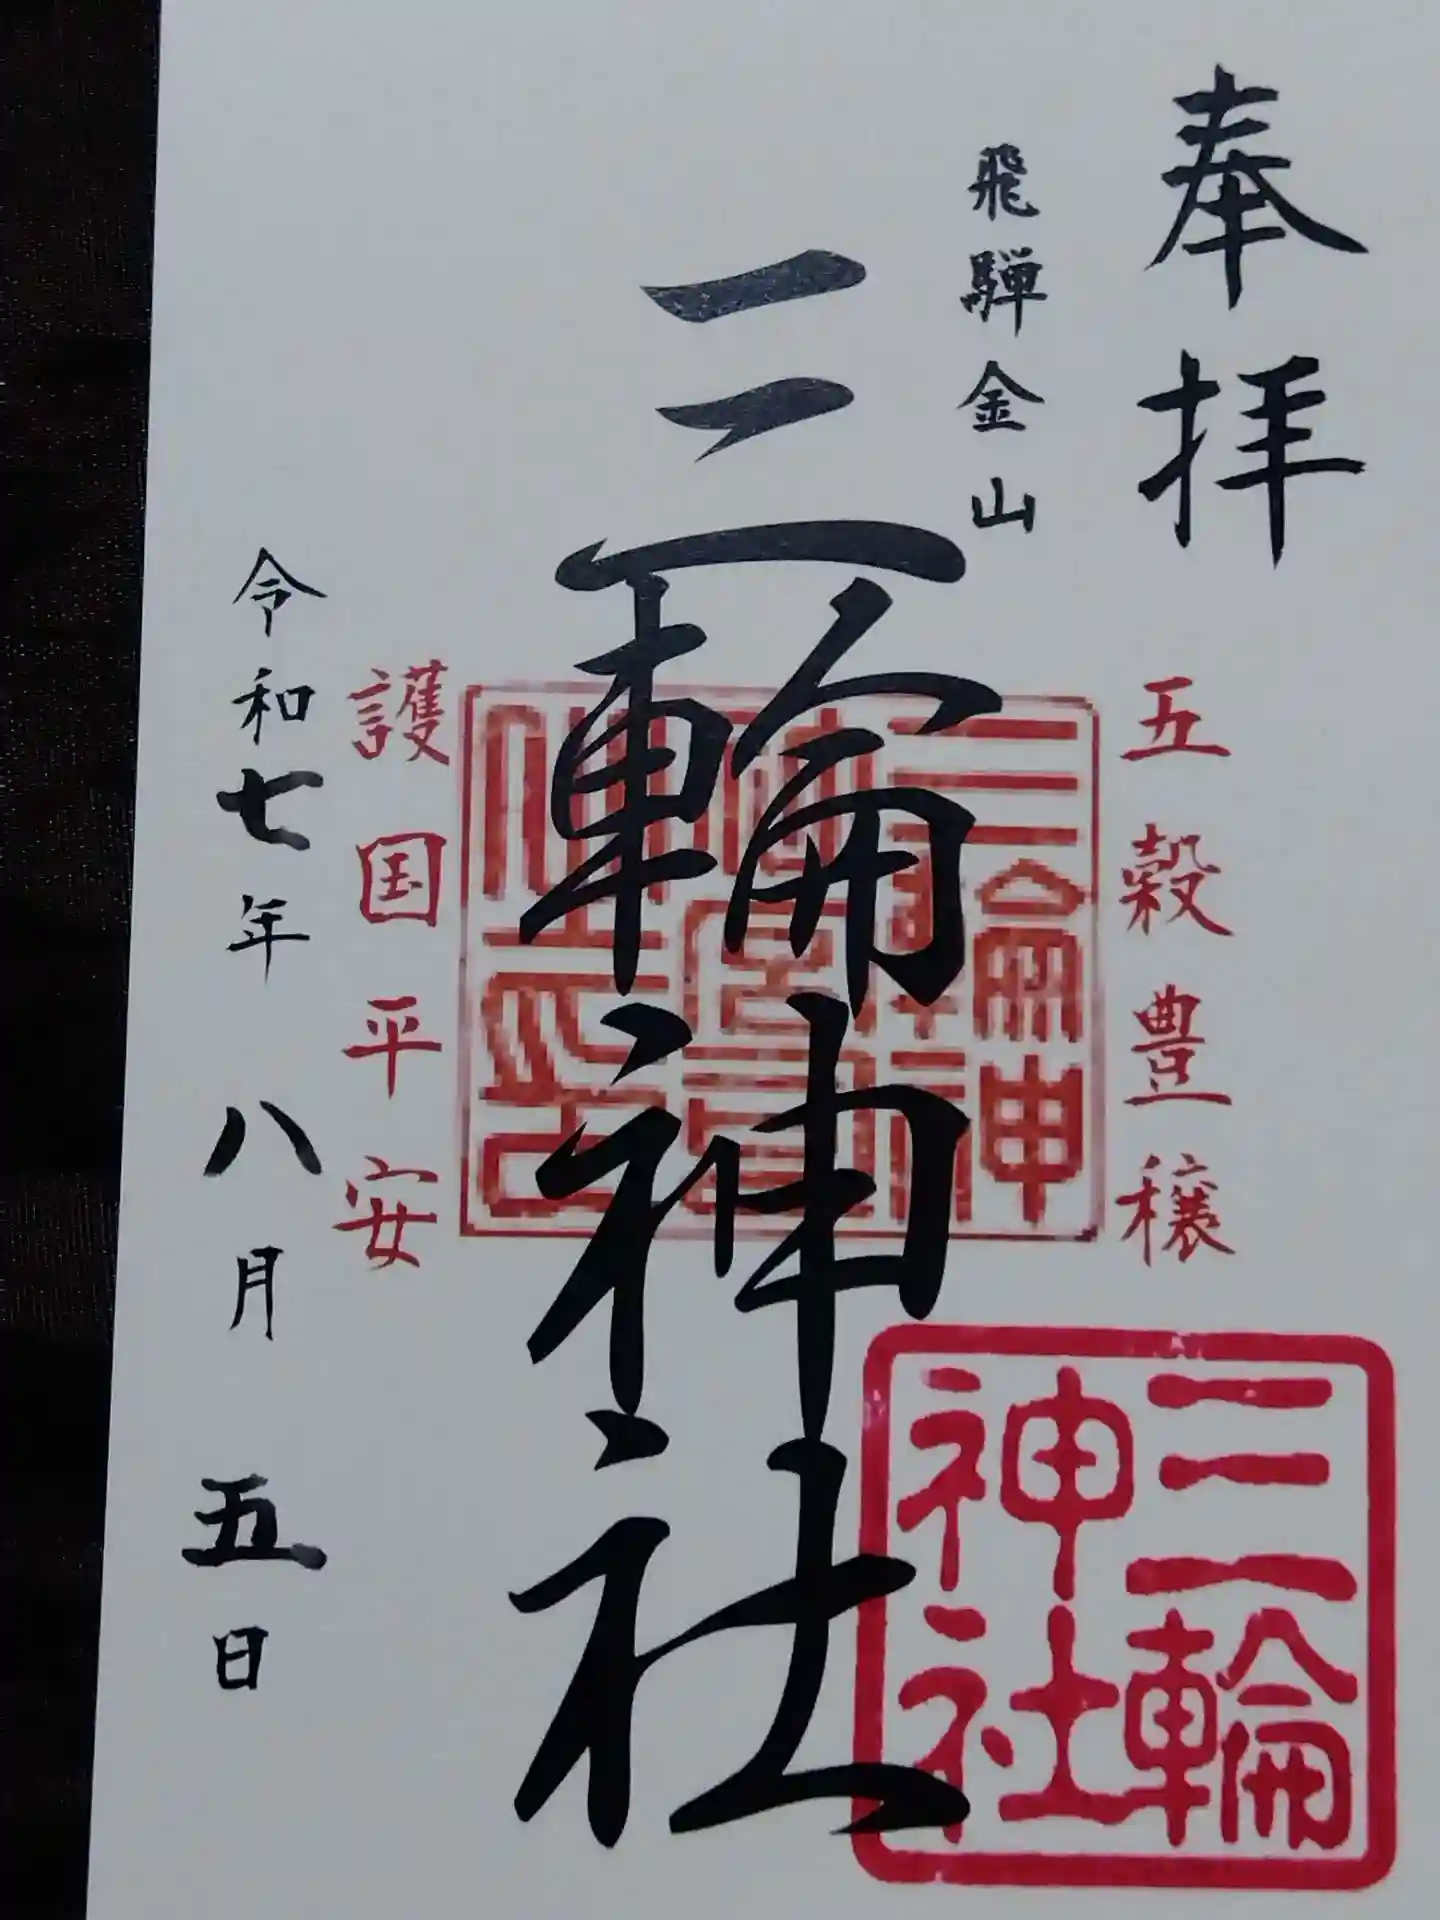 奉拝
飛騨金山
五穀豊穣
三輪神社
護国平安
令和七年 八月 五日
三輪
神社